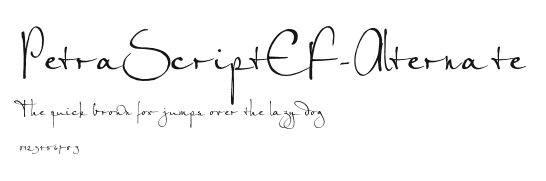 PetraScriptEF-Alternate
The quick brown fox jumps over the lazy dog
0123456789